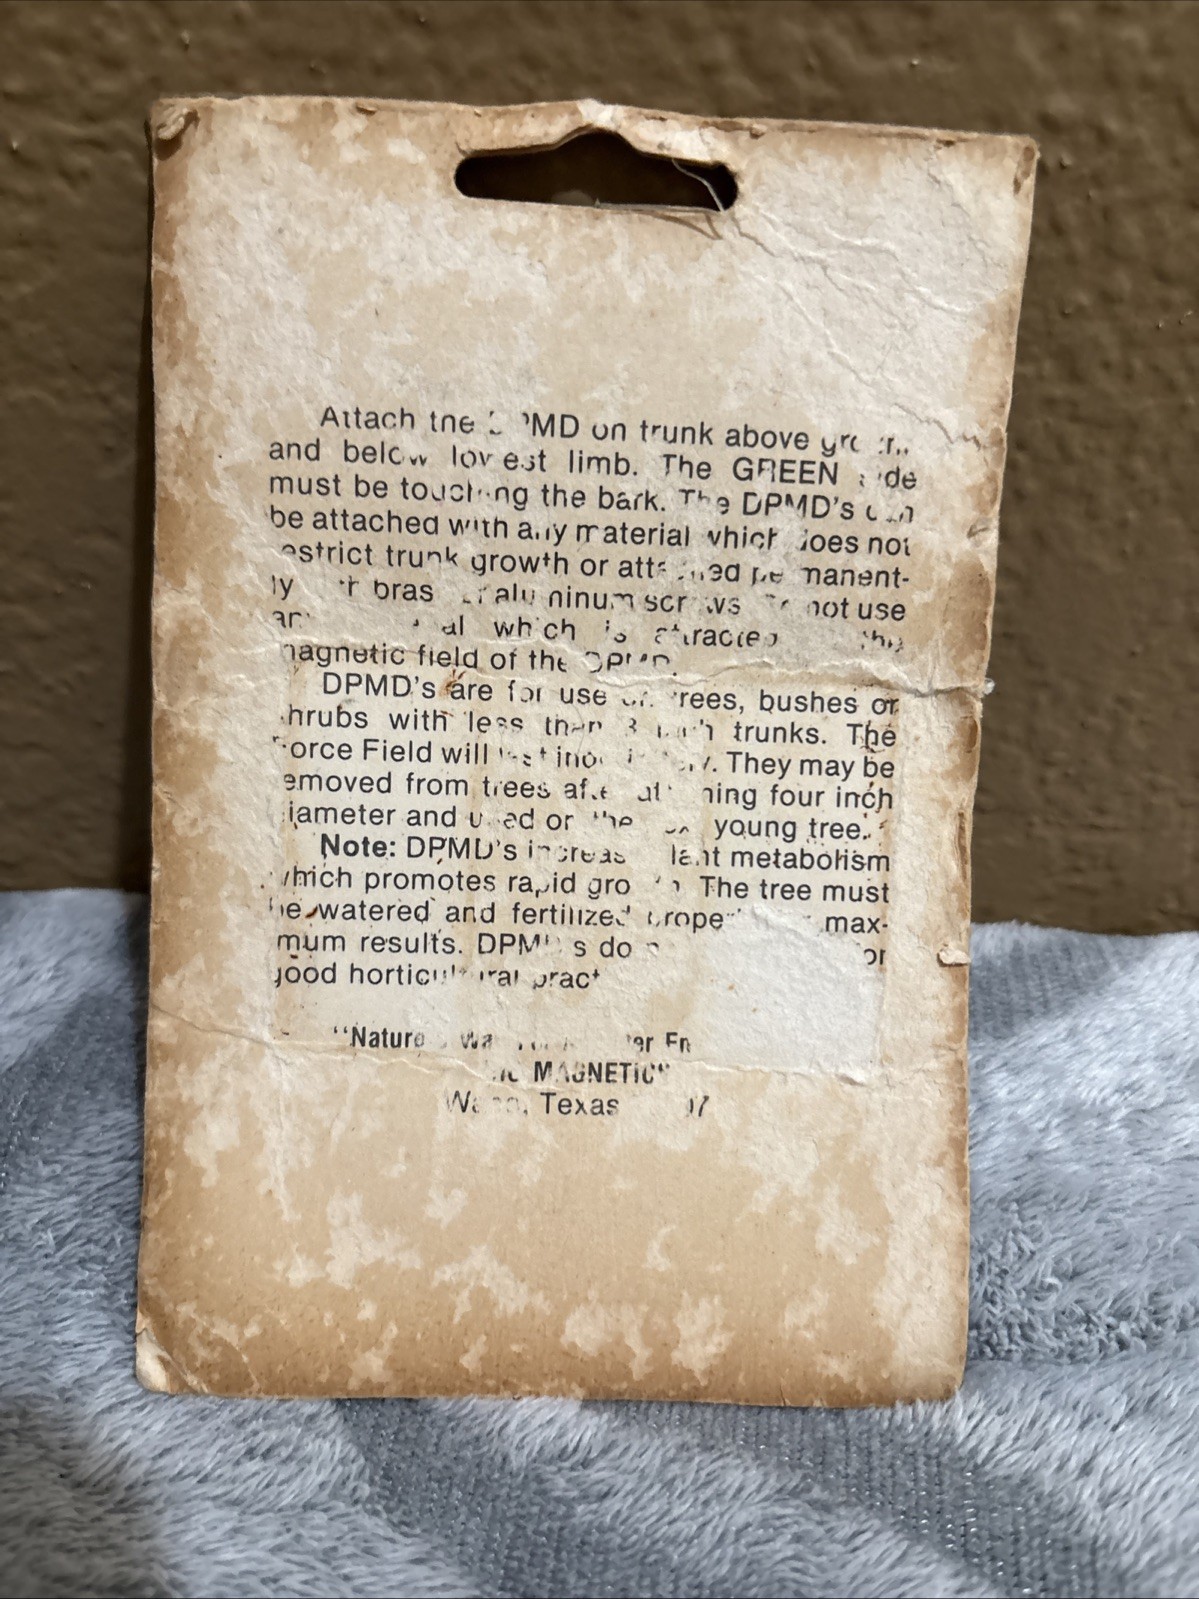 Attach the DPMD on trunk above
and below lowest limb. The GREEN side
must be touching the bark. The DPMD's can
be attached with any material which does not
restrict trunk growth or attached permanent-
ly brass or aluminum screws. Do not use
which is attracted
magnetic field of the DPMD.
DPMD's are for use on trees, bushes or
shrubs with less than 3 inch trunks. The
Force Field will last . They may be
removed from trees after attaining four inch
diameter and used on young tree.
Note: DPMD's increase plant metabolism
which promotes rapid growth. The tree must
be watered and fertilized max-
imum results. DPMD's do
good horticultural
"Nature's
MAGNETIC"
Waco, Texas